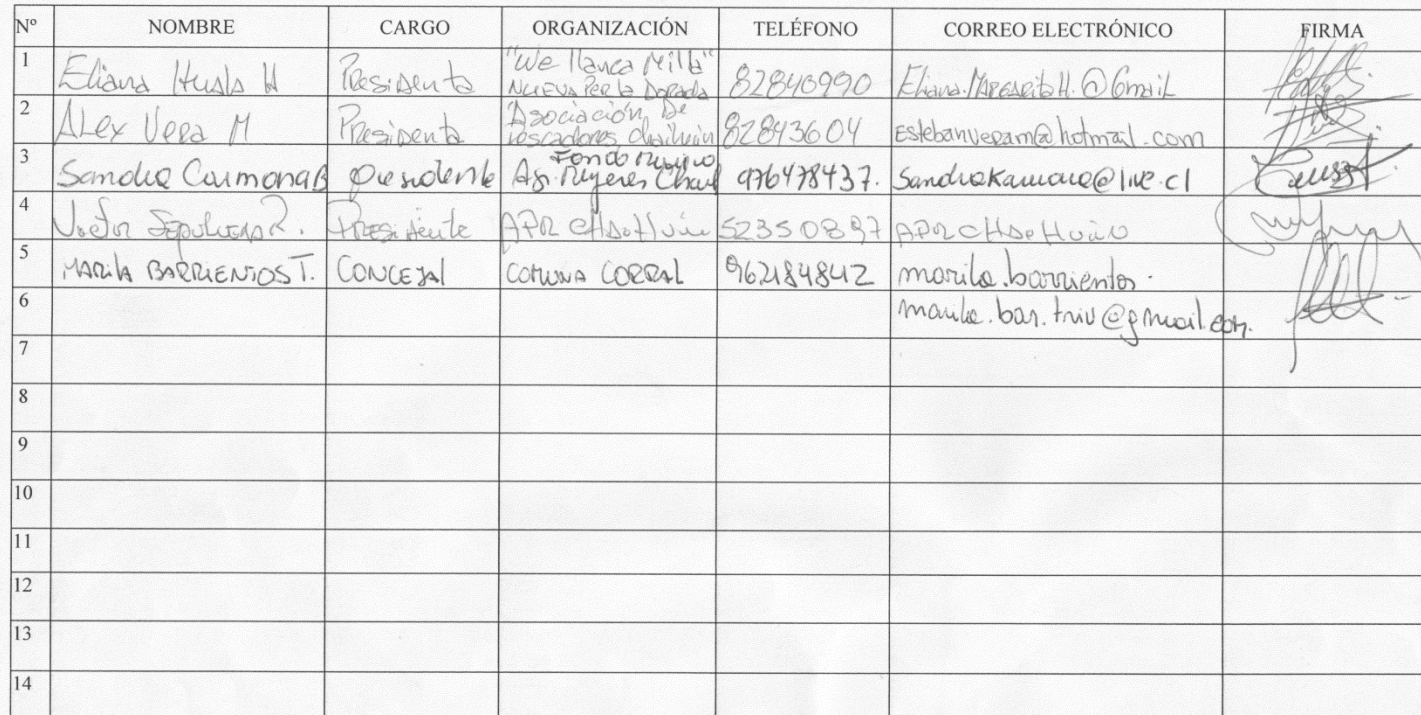 Nº NOMBRE CARGO ORGANIZACIÓN TELÉFONO CORREO ELECTRÓNICO FIRMA
1 Eliana Huala H Presidenta "We llanca Milla" NUEVA Perla Dorada 82840990 Eliana.MARGARita H.@Gmail
2 ALex Vera M Presidente Asociación De Pescadores chaihuin 82843604 estebanveram@hotmail.com
3 Sandra Carmona B presidente Fondo 976478437. Sandrakamona@live.cl
4 Victor Sepulveda R. Presidente APR 52350897 APR
5 MARilA BARRIENTOS T. CONCEJAL COMUNA CORRAL 962184842 marila.barrientos.
6 marila.bar.triv@gmail.com.
7
8
9
10
11
12
13
14